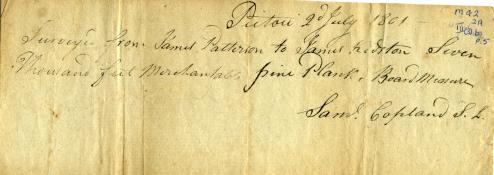 Pictou 2d July 1801
Survey'd from James Patterson to James Kedston Seven
Thousand feet Merchantable pine Plank, Board Measure
Saml. Copland S. L.
MG 2